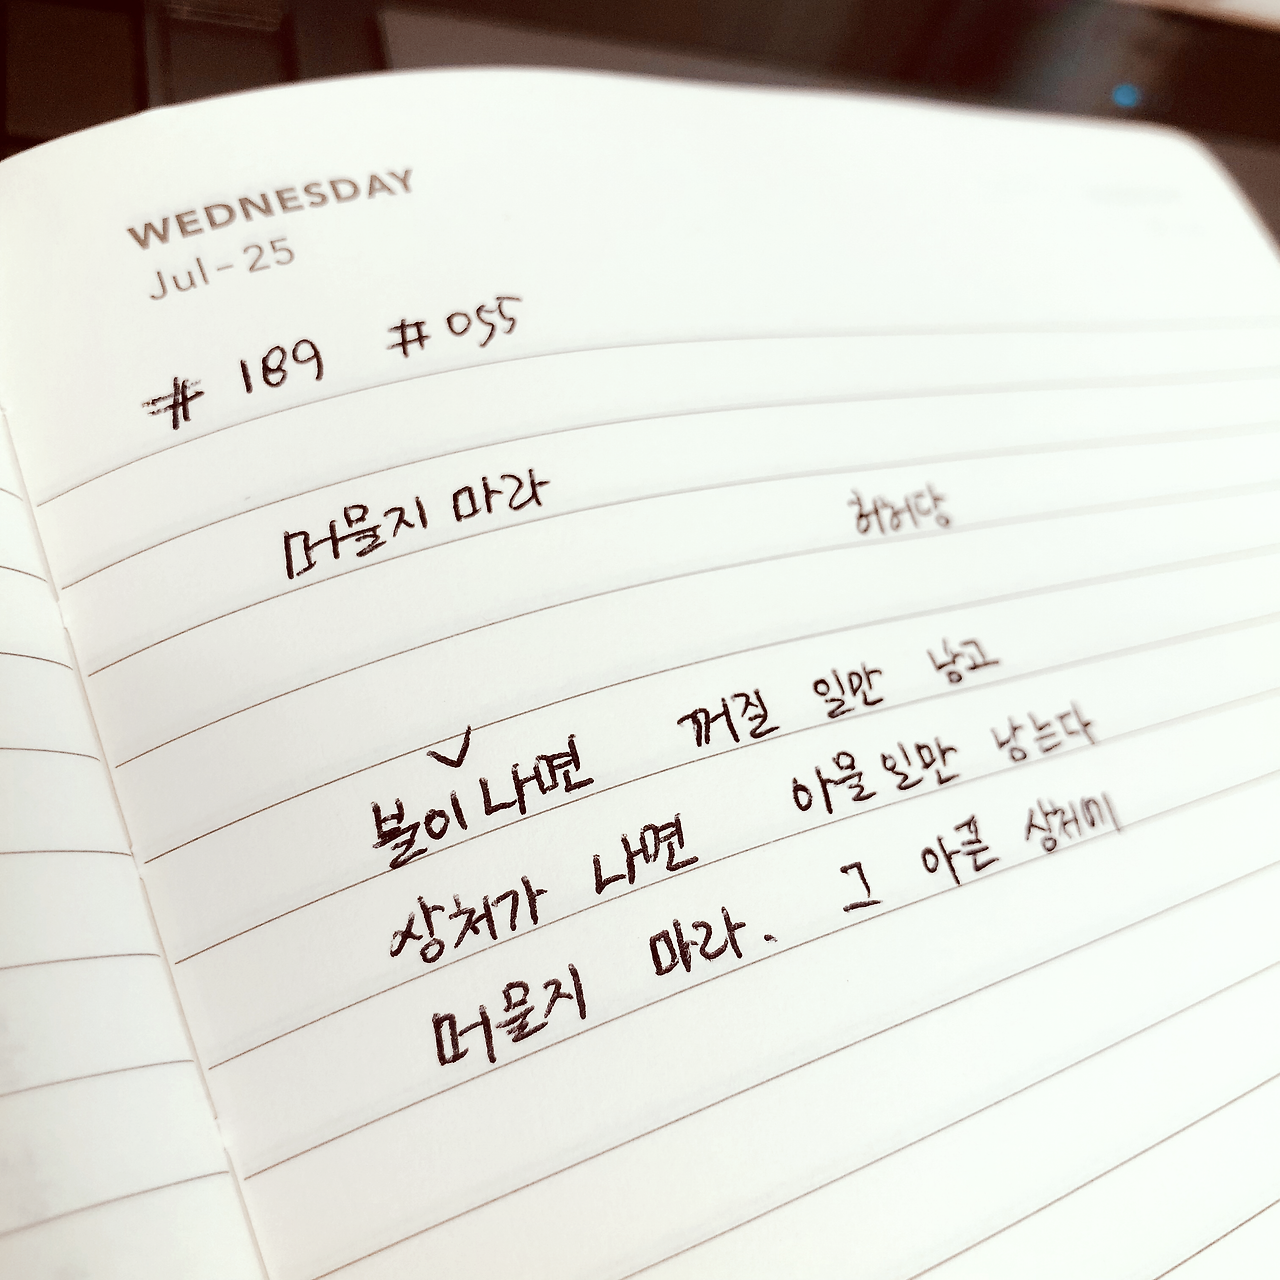 WEDNESDAY
Jul-25
# 189 # 055
머물지 마라 허허당
불이 나면 꺼질 일만 남고
상처가 나면 아물 일만 남는다
머물지 마라. 그 아픈 상처에